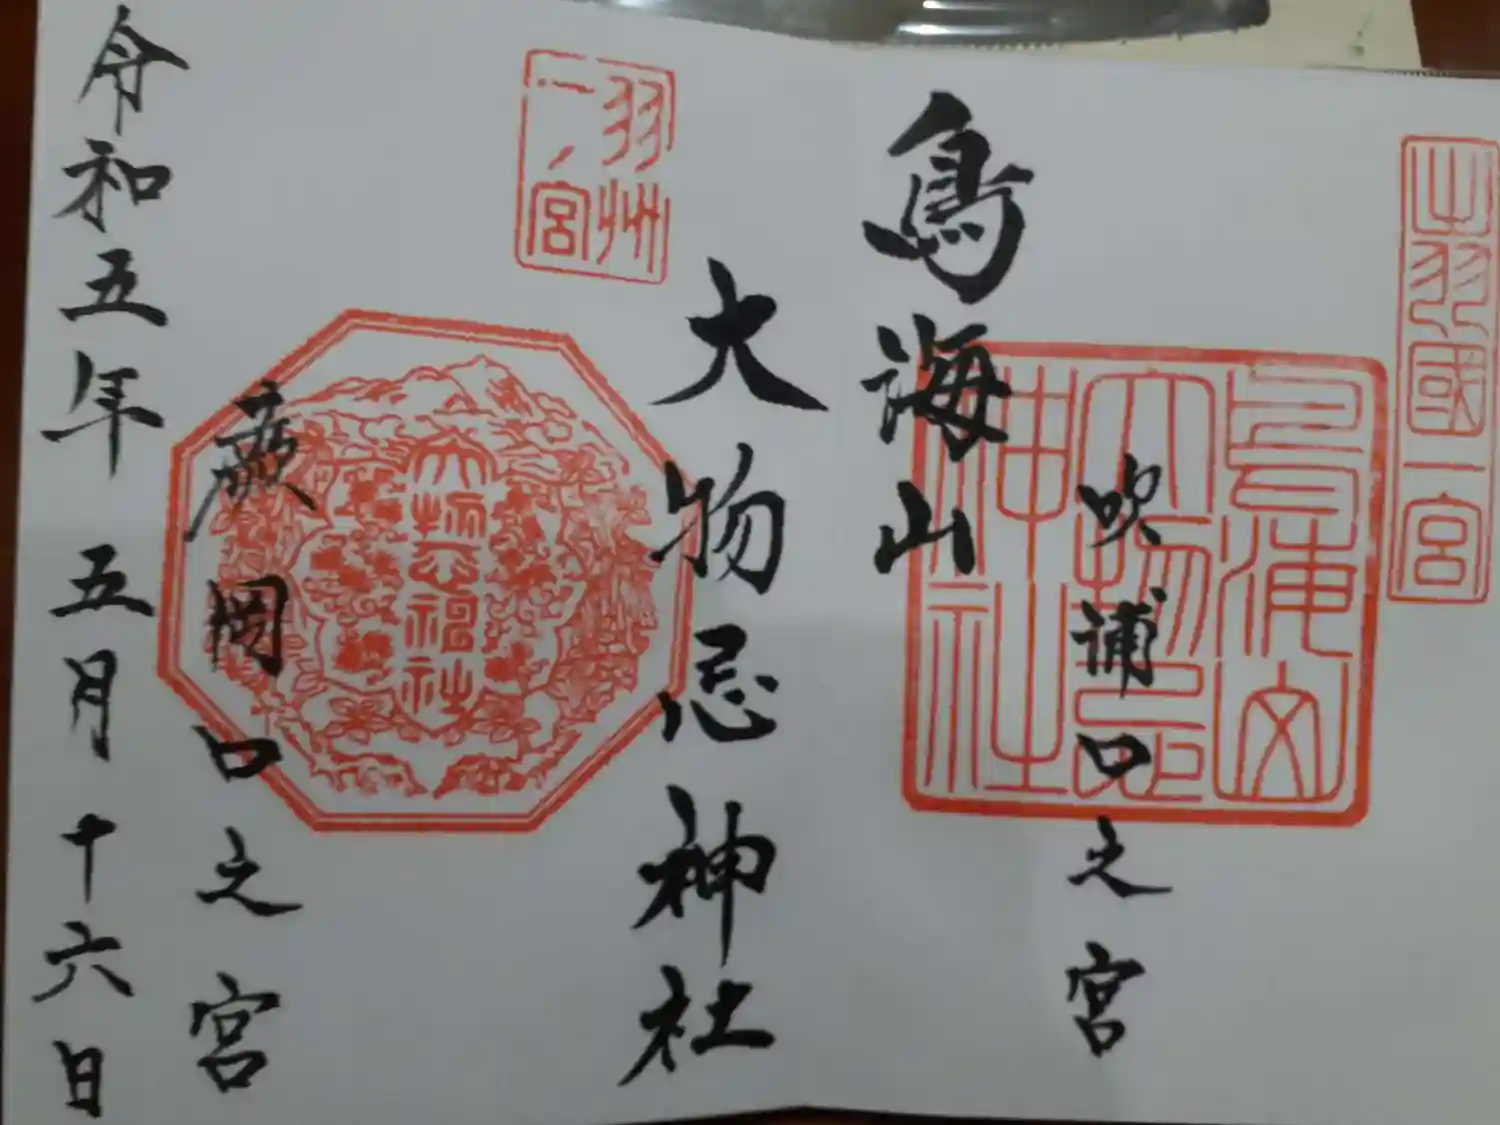 出羽國一宮
吹浦口之宮
鳥海山
大物忌神社
鳥海山
大物忌
神社
羽州
一ノ宮
大物忌神社
蕨岡口之宮
令和五年五月十六日